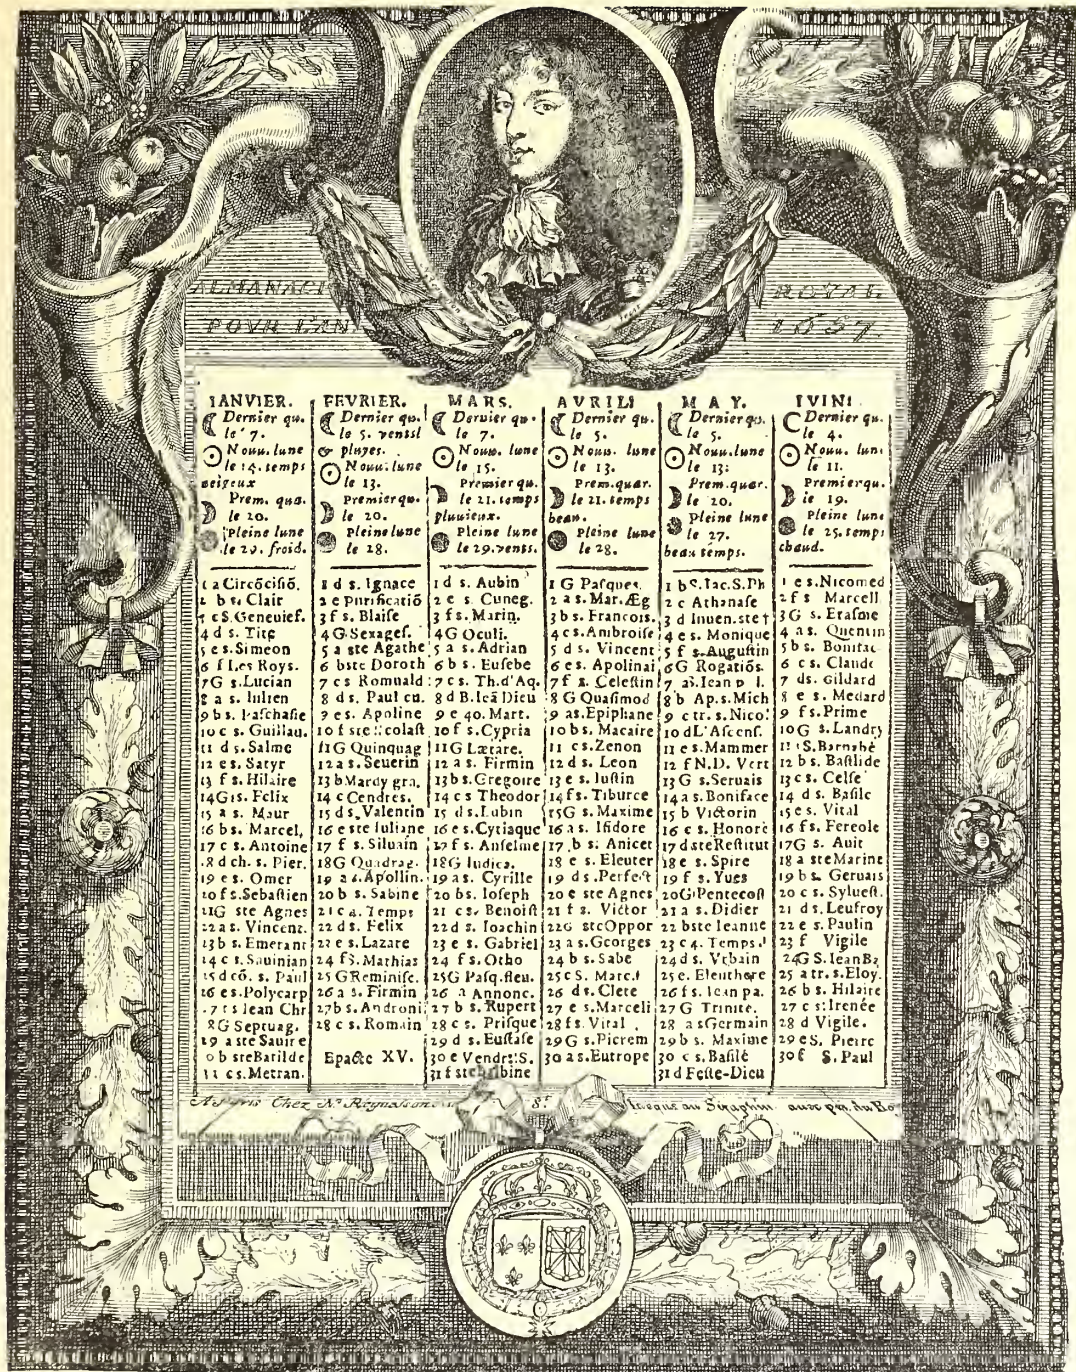 ALMANACH ROYAL
POVR L'AN 1657.
IANVIER.
Dernier qu.
le 7.
Nouu. lune
le 14. temps
neigeux
Prem. qua.
le 20.
Pleine lune
le 29. froid.
1 a Circőcisiő.
2 b s. Clair
3 c S. Geneuief.
4 d s. Tite
5 e s. Simeon
6 f Les Roys.
7 G s. Lucian
8 a s. Iulien
9 b s. Paschasie
10 c s. Guillau.
11 d s. Salme
12 e s. Satyr
13 f s. Hilaire
14 G s. Felix
15 a s. Maur
16 b s. Marcel,
17 c s. Antoine
18 d ch. s. Pier.
19 e s. Omer
20 f s. Sebastien
21 G ste Agnes
22 a s. Vincent.
23 b s. Emerant
24 c s. Sauinian
25 d cő. s. Paul
26 e s. Polycarp
27 f s Iean Chr
28 G Septuag.
29 a ste Sauire
30 b ste Batilde
31 c s. Metran.
FEVRIER.
Dernier qu.
le 5. ventsl
& pluyes.
Nouu. lune
le 13.
Premier qu.
le 20.
Pleine lune
le 28.
1 d s. Ignace
2 e Purificatiő
3 f s. Blaise
4 G Sexages.
5 a ste Agathe
6 b ste Doroth
7 c s Romuald
8 d s. Paul eu.
9 e s. Apoline
10 f ste Scolast
11 G Quinquag
12 a s. Seuerin
13 b Mardy gra.
14 c Cendres.
15 d s. Valentin
16 e ste Iuliane
17 f s. Siluain
18 G Quadrag.
19 a s. Apollin.
20 b s. Sabine
21 c 4. Temps
22 d s. Felix
23 e s. Lazare
24 f S. Mathias
25 G Reminisc.
26 a s. Firmin
27 b s. Androni
28 c s. Romain
Epacte XV.
MARS.
Dernier qu.
le 7.
Nouu. lune
le 15.
Premier qu.
le 21. temps
pluuieux.
Pleine lune
le 29. vents.
1 d s. Aubin
2 e s. Cuneg.
3 f s. Marin.
4 G Oculi.
5 a s. Adrian
6 b s. Eusebe
7 c s. Th. d'Aq.
8 d B. Ieã Dieu
9 e 40. Mart.
10 f s. Cypria
11 G Lætare.
12 a s. Firmin
13 b s. Gregoire
14 c s Theodor
15 d s. Lubin
16 e s. Cytiaque
17 f s. Anselme
18 G Iudica.
19 a s. Cyrille
20 b s. Ioseph
21 c s. Benoist
22 d s. Ioachin
23 e s. Gabriel
24 f s. Otho
25 G Pasq. fleu.
26 a Annonc.
27 b s. Rupert
28 c s. Prisque
29 d s. Eustase
30 e Vendr. S.
31 f ste Balbine
AVRILI
Dernier qu.
le 5.
Nouu. lune
le 13.
Prem. quar.
le 21. temps
beau.
Pleine lune
le 28.
1 G Pasques.
2 a s. Mar. Æg
3 b s. Francois.
4 c s. Ambroise
5 d s. Vincent
6 e s. Apolinai
7 f s. Celestin
8 G Quasimod
9 a s. Epiphane
10 b s. Macaire
11 c s. Zenon
12 d s. Leon
13 e s. Iustin
14 f s. Tiburce
15 G s. Maxime
16 a s. Isidore
17 b s. Anicet
18 e s. Eleuter
19 d s. Perfect
20 e ste Agnes
21 f s. Victor
22 G ste Oppor
23 a s. Georges
24 b s. Sabe
25 c S. Marc.
26 d s. Clete
27 e s. Marceli
28 f s. Vital.
29 G s. Pierem
30 a s. Eutrope
MAY.
Dernier qu.
le 5.
Nouu. lune
le 13:
Prem. quar.
le 20.
Pleine lune
le 27.
beau temps.
1 b S. Iac. S. Ph
2 c Athanase
3 d Inuen. ste †
4 e s. Monique
5 f s. Augustin
6 G Rogatiős.
7 a s. Iean p l.
8 b Ap. s. Mich
9 c tr. s. Nico.
10 d L'Ascens.
11 e s. Mammer
12 f N. D. Vert
13 G s. Seruais
14 a s. Boniface
15 b Victorin
16 c s. Honoré
17 d ste Restitut
18 e s. Spire
19 f s. Yues
20 G Pentecost
21 a s. Didier
22 b ste Ieanne
23 c 4. Temps.
24 d s. Vrbain
25 e. Eleuthere
26 f s. Iean pa.
27 G Trinite.
28 a s Germain
29 b s. Maxime
30 c s. Basile
31 d Feste-Dieu
IVINI
Dernier qu.
le 4.
Nouu. lune
le 11.
Premier qu.
le 19.
Pleine lune
le 25. temps
chaud.
1 e s. Nicomed
2 f s Marcell
3 G s. Erasme
4 a s. Quentin
5 b s. Bonifac
6 c s. Claude
7 d s. Gildard
8 e s. Medard
9 f s. Prime
10 G s. Landry
11 S. Barnabé
12 b s. Basilide
13 c s. Celse
14 d s. Basile
15 e s. Vital
16 f s. Fereole
17 G s. Auit
18 a ste Marine
19 b s. Geruais
20 c s. Syluest.
21 d s. Leufroy
22 e s. Paulin
23 f Vigile
24 G S. Iean Ba
25 a tr. s. Eloy.
26 b s. Hilaire
27 c s: Irenée
28 d Vigile.
29 e S. Pierre
30 f S. Paul
A Paris Chez N. Regnasson St Iacque au Séraphin. auec pri. du Roy